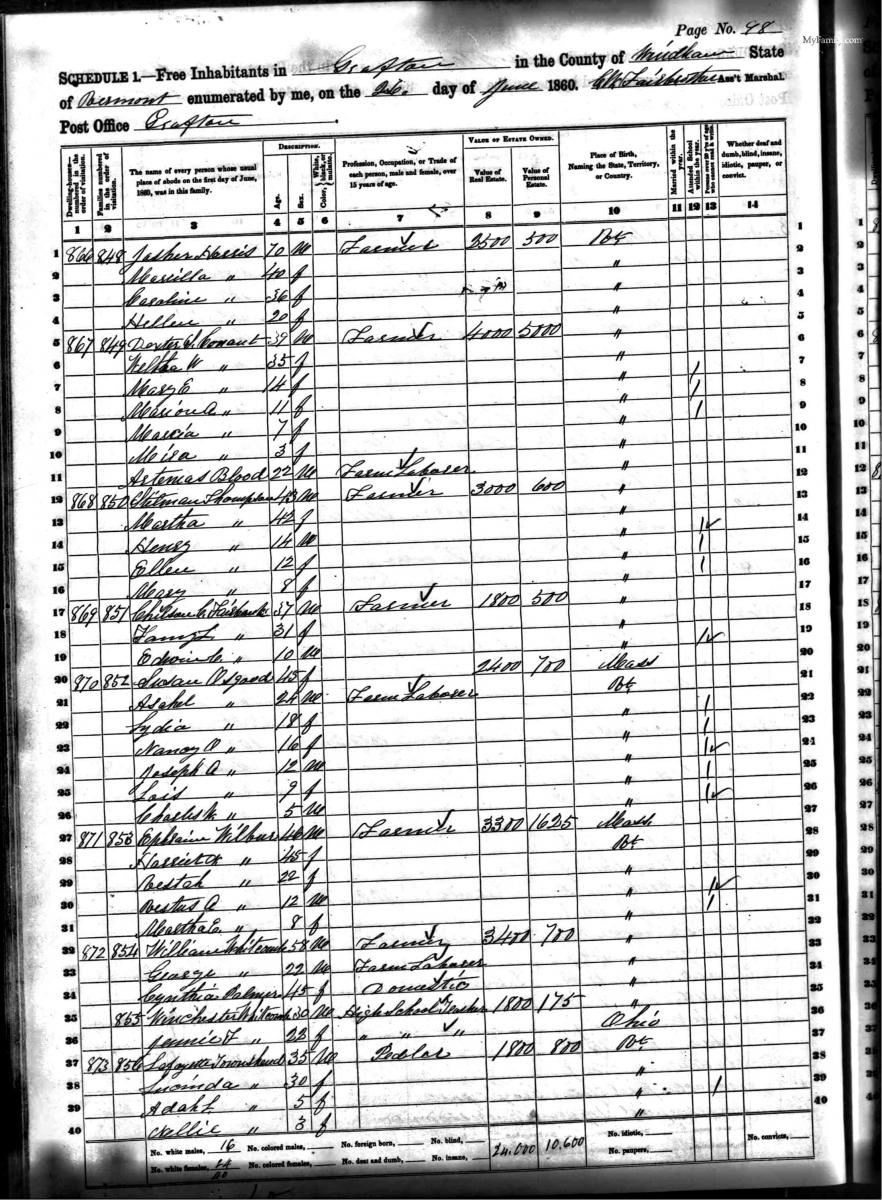 Page No. 98
MyFamily.com
SCHEDULE 1.—Free Inhabitants in Grafton in the County of Windham State
of Vermont enumerated by me, on the 26. day of June 1860. Fairbrother Ass't Marshal.
Post Office Grafton
Dwelling-houses—numbered in the order of visitation. Families numbered in the order of visitation. The name of every person whose usual place of abode on the first day of June, 1860, was in this family. DESCRIPTION. Age. Sex. Color, White, black, or mulatto. Profession, Occupation, or Trade of each person, male and female, over 15 years of age. VALUE OF ESTATE OWNED. Value of Real Estate. Value of Personal Estate. Place of Birth, Naming the State, Territory, or Country. Married within the year. Attended School within the year. Persons over 20 y'rs of age who cannot read & write. Whether deaf and dumb, blind, insane, idiotic, pauper, or convict.
1 2 3 4 5 6 7 8 9 10 11 12 13 14
1 866 848 Jasher Harris 70 m Farmer 2500 500 Vt 1
2 Marcilla " 40 f " 2
3 Caroline " 36 f " 3
4 Hellen " 20 f " 4
5 867 849 Dexter Conant 39 m Farmer 4000 5000 " 5
6 Weltha W " 35 f " 6
7 Mary E " 14 f " 1 7
8 Marion A " 11 f " 1 8
9 Marcia " 7 f " 1 9
10 Mira " 3 f " 10
11 Artemas Blood 22 m Farm Laborer " 11
12 868 850 Stilman Thompson 43 m Farmer 3000 600 " 12
13 Martha " 42 f " 13
14 Henry " 14 m " 1 14
15 Ellen " 12 f " 1 15
16 Mary " 8 f " 1 16
17 869 851 Chilson Fairbanks 37 m Farmer 1800 500 " 17
18 Fanny L " 31 f " 18
19 Edwin C " 10 m " 1 19
20 870 852 Susan Osgood 45 f 2400 700 Mass 20
21 Asahel " 24 m Farm Laborer Vt 21
22 Lydia " 18 f " 1 22
23 Nancy O " 16 f " 1 23
24 Joseph A " 12 m " 1 24
25 Lois " 9 f " 1 25
26 Charles W " 5 m " 1 26
27 871 853 Ephraim Wilbur 46 m Farmer 3300 1625 Mass 27
28 Harriet W " 45 f Vt 28
29 Vestah " 22 f " 29
30 Vestus A " 12 m " 1 30
31 Martha E " 8 f " 1 31
32 872 854 William Whitcomb 58 m Farmer 3400 700 " 32
33 George " 22 m Farm Laborer " 33
34 Cynthia Palmer 45 f Domestic " 34
35 855 Winchester Whitcomb 30 m High School Teacher 1800 175 " 35
36 Jennie F " 23 f " " " Ohio 36
37 873 856 Lafayette Townshend 35 m Pedlar 1800 800 Vt 37
38 Lucinda " 30 f " 38
39 Adah L " 5 f " 1 39
40 Nellie " 3 f " 40
No. white males, 16 No. colored males, No. foreign born, No. blind, 24,000 10,600 No. idiotic, No. convicts,
No. white females, 24 No. colored females, No. deaf and dumb, No. insane, No. paupers,
40